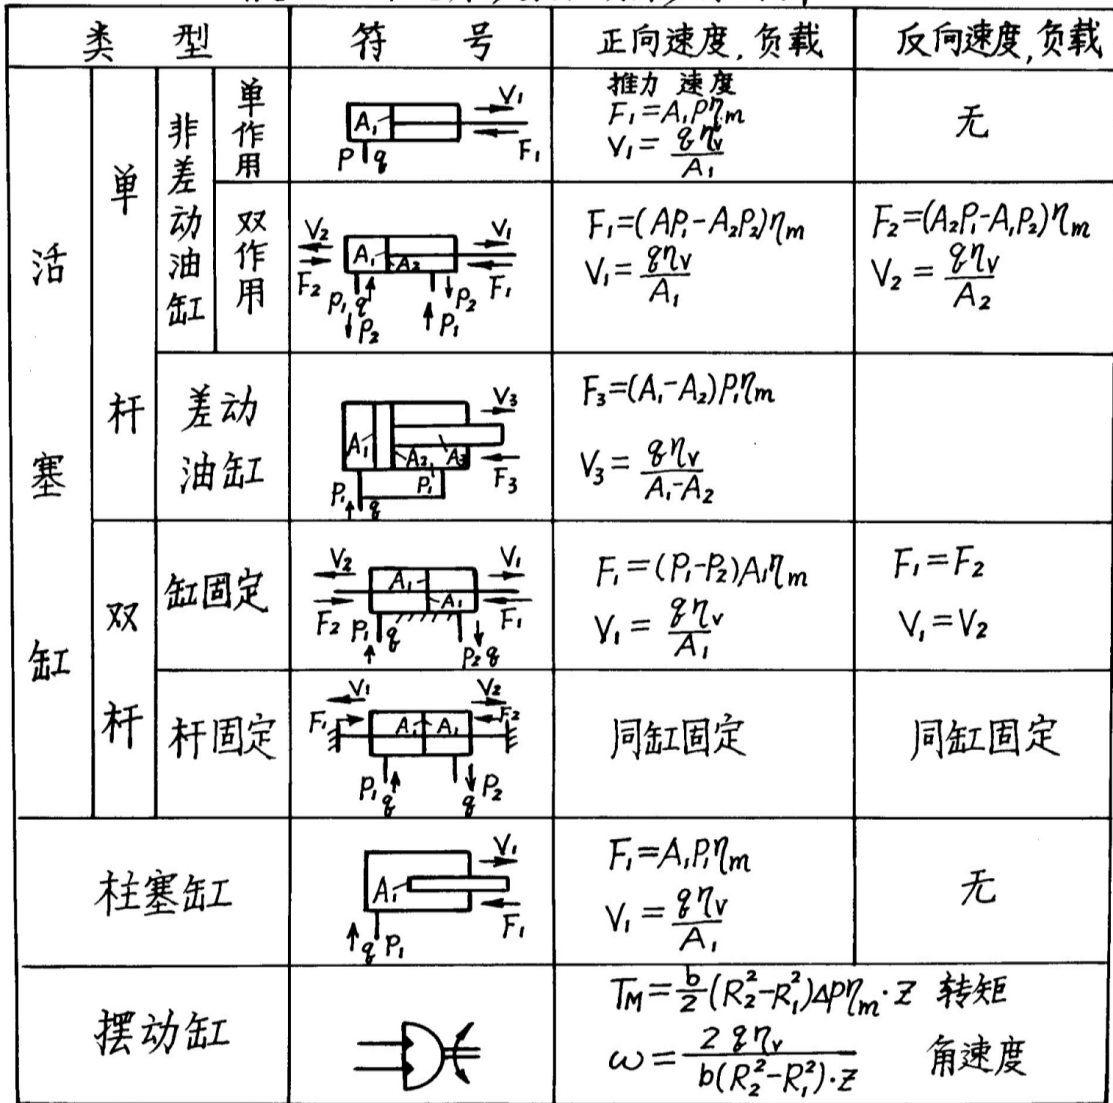 类 型 符 号 正向速度,负载 反向速度,负载
活塞缸
单杆
非差动油缸
单作用
A₁ V₁ F₁ P q
推力 速度
F₁=A₁Pηm
V₁=qηv/A₁
无
双作用
V₂ F₂ A₁ A₂ V₁ F₁ P₁ q P₂ P₂ P₁
F₁=(AP₁-A₂P₂)ηm
V₁=qηv/A₁
F₂=(A₂P₁-A₁P₂)ηm
V₂=qηv/A₂
差动
油缸
A₁ A₂ A₃ V₃ F₃ P₁ P₁ q
F₃=(A₁-A₂)P₁ηm
V₃=qηv/A₁-A₂
双杆
缸固定
V₂ F₂ A₁ A₁ V₁ F₁ P₁ q P₂ q
F₁=(P₁-P₂)A₁ηm
V₁=qηv/A₁
F₁=F₂
V₁=V₂
杆固定
V₁ F₁ A₁ A₁ V₂ F₂ P₁ q q P₂
同缸固定
同缸固定
柱塞缸
A₁ V₁ F₁ q P₁
F₁=A₁P₁ηm
V₁=qηv/A₁
无
摆动缸
TM=b/2(R₂²-R₁²)ΔPηm·Z 转矩
ω=2qηv/b(R₂²-R₁²)·Z 角速度